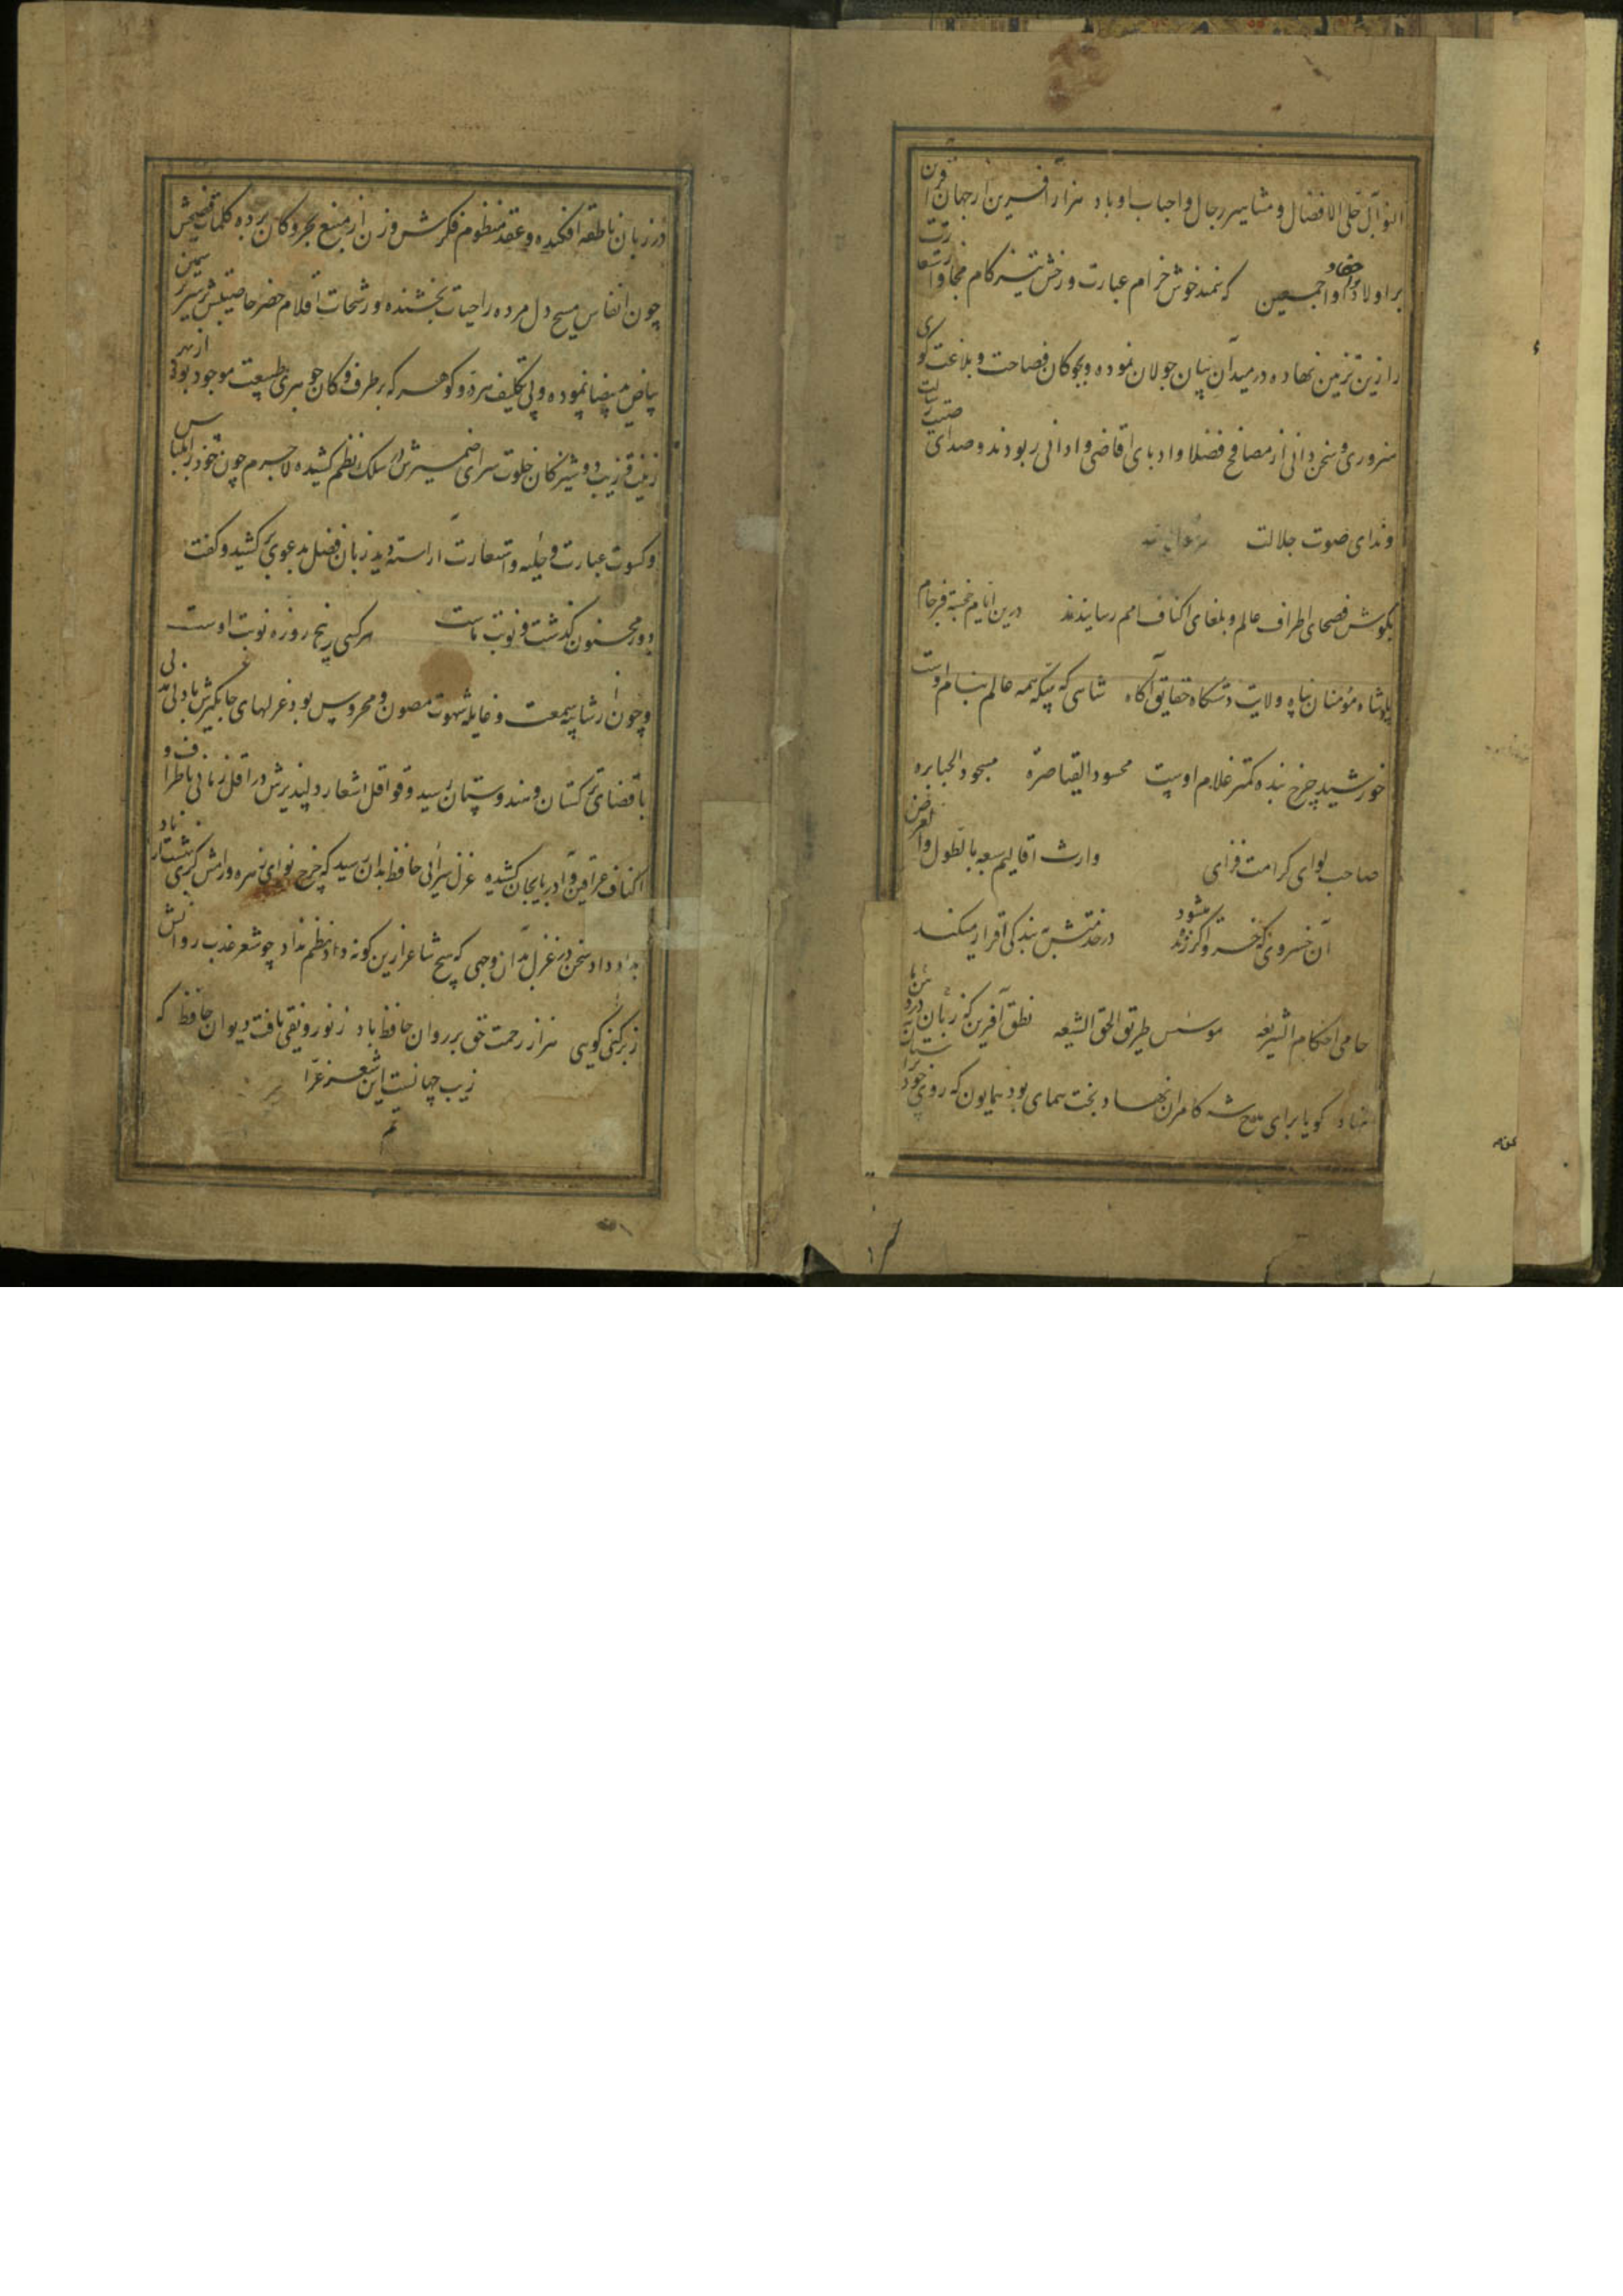 النوال جلی الافضال و مشاهیر رجال و احباب او باد هزار آفرین از جهان آفرین
بر اولاد و احفاد او اجمعین که سمند خوش خرام عبارت و رخش تیز کام مجاز و استعارت
را زین تزیین نهاده در میدان بیان جولان نموده و بچوکان فصاحت و بلاغت کوی
سروری و سخن دانی از مصافع فضلا و ادبای اقاضی و ادانی ربودند و صدای صیت
و ندای صوت جلالت
بکوش فصحای اطراف عالم و بلغای اکناف امم رسانیدند درین ایام خجسته فرجام
پادشاه مؤمنان پناه ولایت دستکاه حقایق آکاه شاهی که سکه همه عالم بنام اوست
خورشید چرخ بنده کمتر غلام اوست محسود القیاصره مسجود الجبابره
صاحب لوای کرامت فزای وارث اقالیم سبعه بالطول والعرض
آن خسروی که خسرو اکر زنده میشود در خدمتش به بندکی اقرار میکند
حامی احکام الشریعه موسس طریق الحق الشیعه نطق آفرین که زبان در
نهاد کویا برای مدح شه کامران نهاد بخت همای بود همایون که روی خود
در زبان ناطقه افکنده و عقد منظوم فکرش وزن از منبع بحر و کان برده کلمات فصیحش
چون انفاس مسیح دل مرده را حیات بخشنده و رشحات اقلام خضر خاصیتش بر سر
بیاض ید بیضا نموده و بی تکلیف هر در و کوهر که بر طرف دکان جوهری طبیعت موجود بود از بهر
زینت و زیب دوشیزکان خلوت سرای ضمیرش در سلک نظم کشیده لاجرم چون خود را بلباس
و کسوت عبارت و حلیه و استعارت آراسته دید زبان فضل بدعوی بر کشید و کفت
دور مجنون کذشت و نوبت ماست هر کسی پنج روزه نوبت اوست
و چون از شایبه سمعت و غایله شهوت مصون و محروس بود غزلهای جهانگیرش بادنی مدتی
باقصای ترکستان و هندوستان رسید و قوافل اشعار دلپذیرش در اقل زمانی باطراف و
اکناف عراقین و آذربایجان کشیده غزل سرایی حافظ بدان رسید که چرخ نوای زهره و رامش کری بهشت از یاد
بداد داد سخن در غزل بدان وجهی که هیچ شاعر ازین کونه داد نظم نداد چو شعر عذب روانش
ز بر کنی کویی هزار رحمت حق بر روان حافظ باد ز نو رونقی یافت دیوان حافظ که
زیب جهانست این شعر غرا
تم